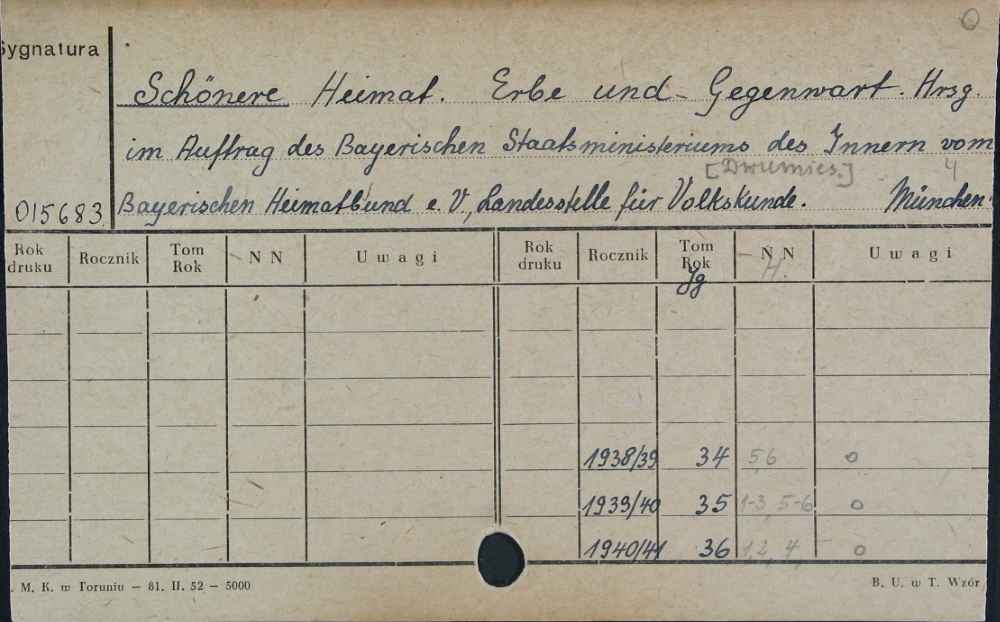 Sygnatura
Schönere Heimat. Erbe und Gegenwart. Hrsg.
im Auftrag des Bayerischen Staatsministeriums des Innern vom
[Dwumies.] 4
015683 Bayerischen Heimatbund e. V., Landesstelle für Volkskunde. München.
Rok druku Rocznik Tom Rok N N Uwagi Rok druku Rocznik Tom Rok N N Uwagi
Jg H.
1938/39 34 5,6 o
1939/40 35 1-3, 5-6 o
1940/41 36 1,2, 4, o
. M. K. w Toruniu — 81. II. 52 — 5000 B. U. w T. Wzór